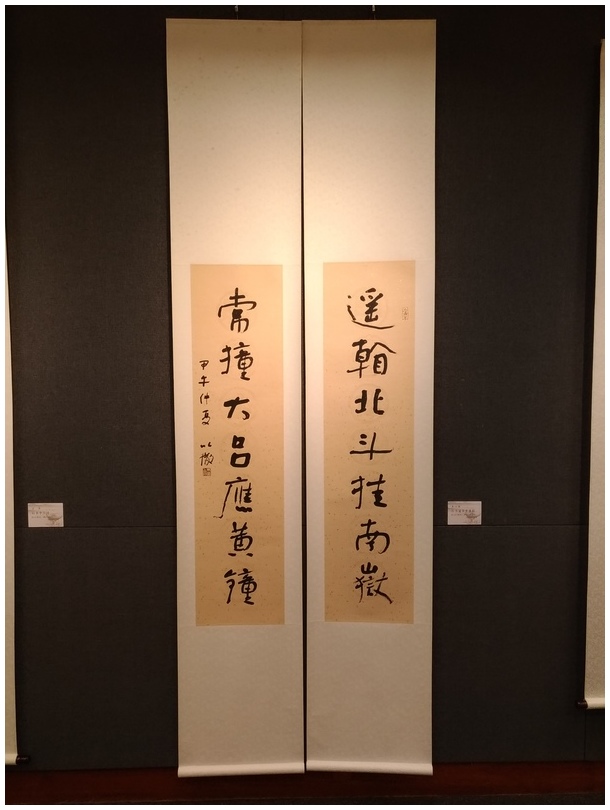 遥斡北斗挂南嶽
常撞大吕應黄鐘
甲午仲夏